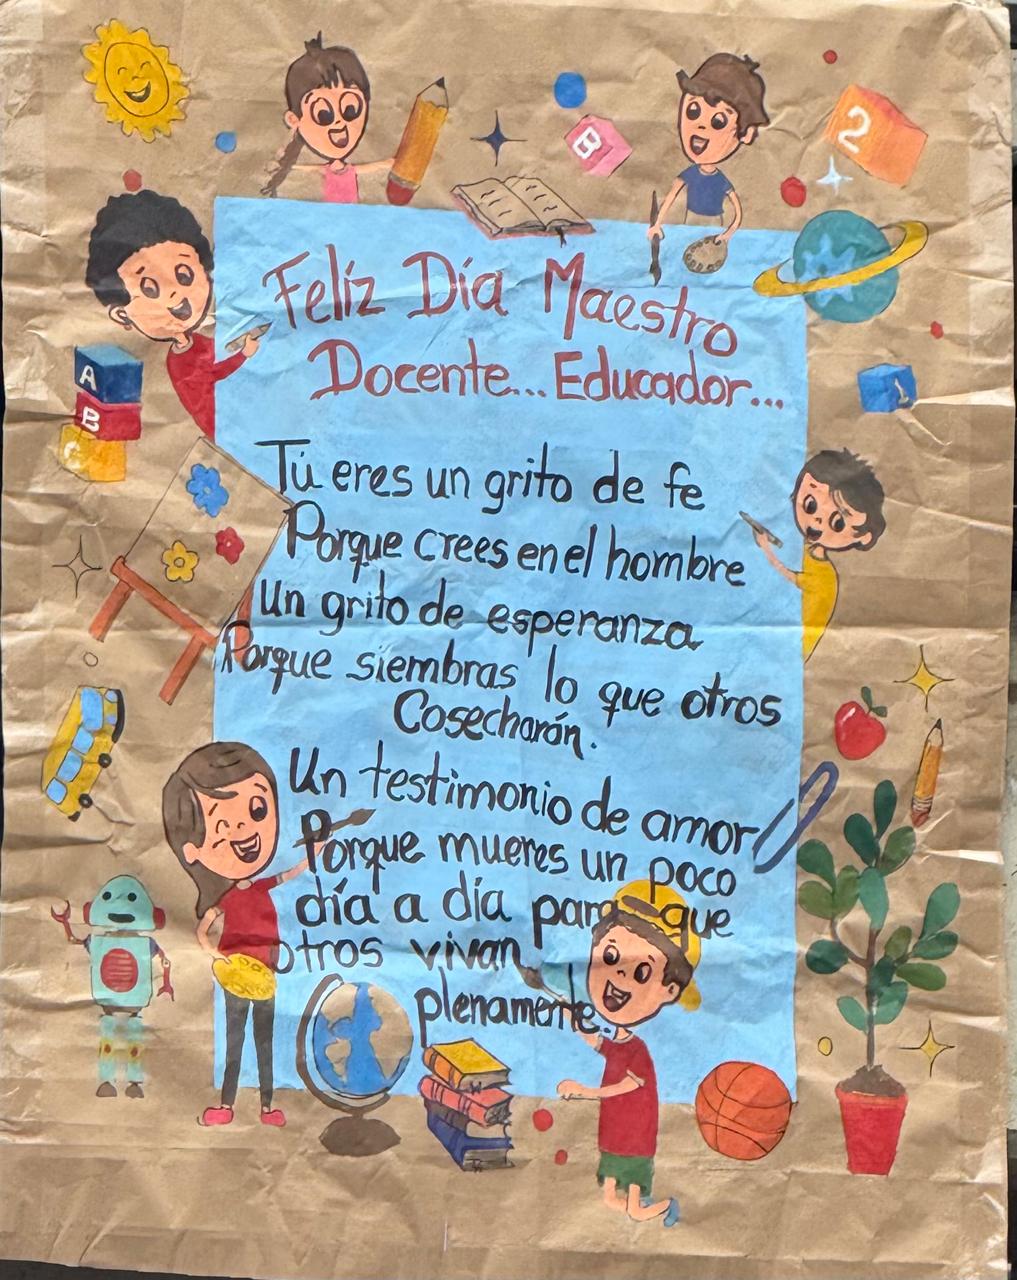 B
2
Felíz Día Maestro
Docente... Educador...
A
B
C
1
Tú eres un grito de fe
Porque crees en el hombre
Un grito de esperanza
Porque siembras lo que otros
Cosecharán.
Un testimonio de amor
Porque mueres un poco
día a día para que
otros vivan
plenamente.